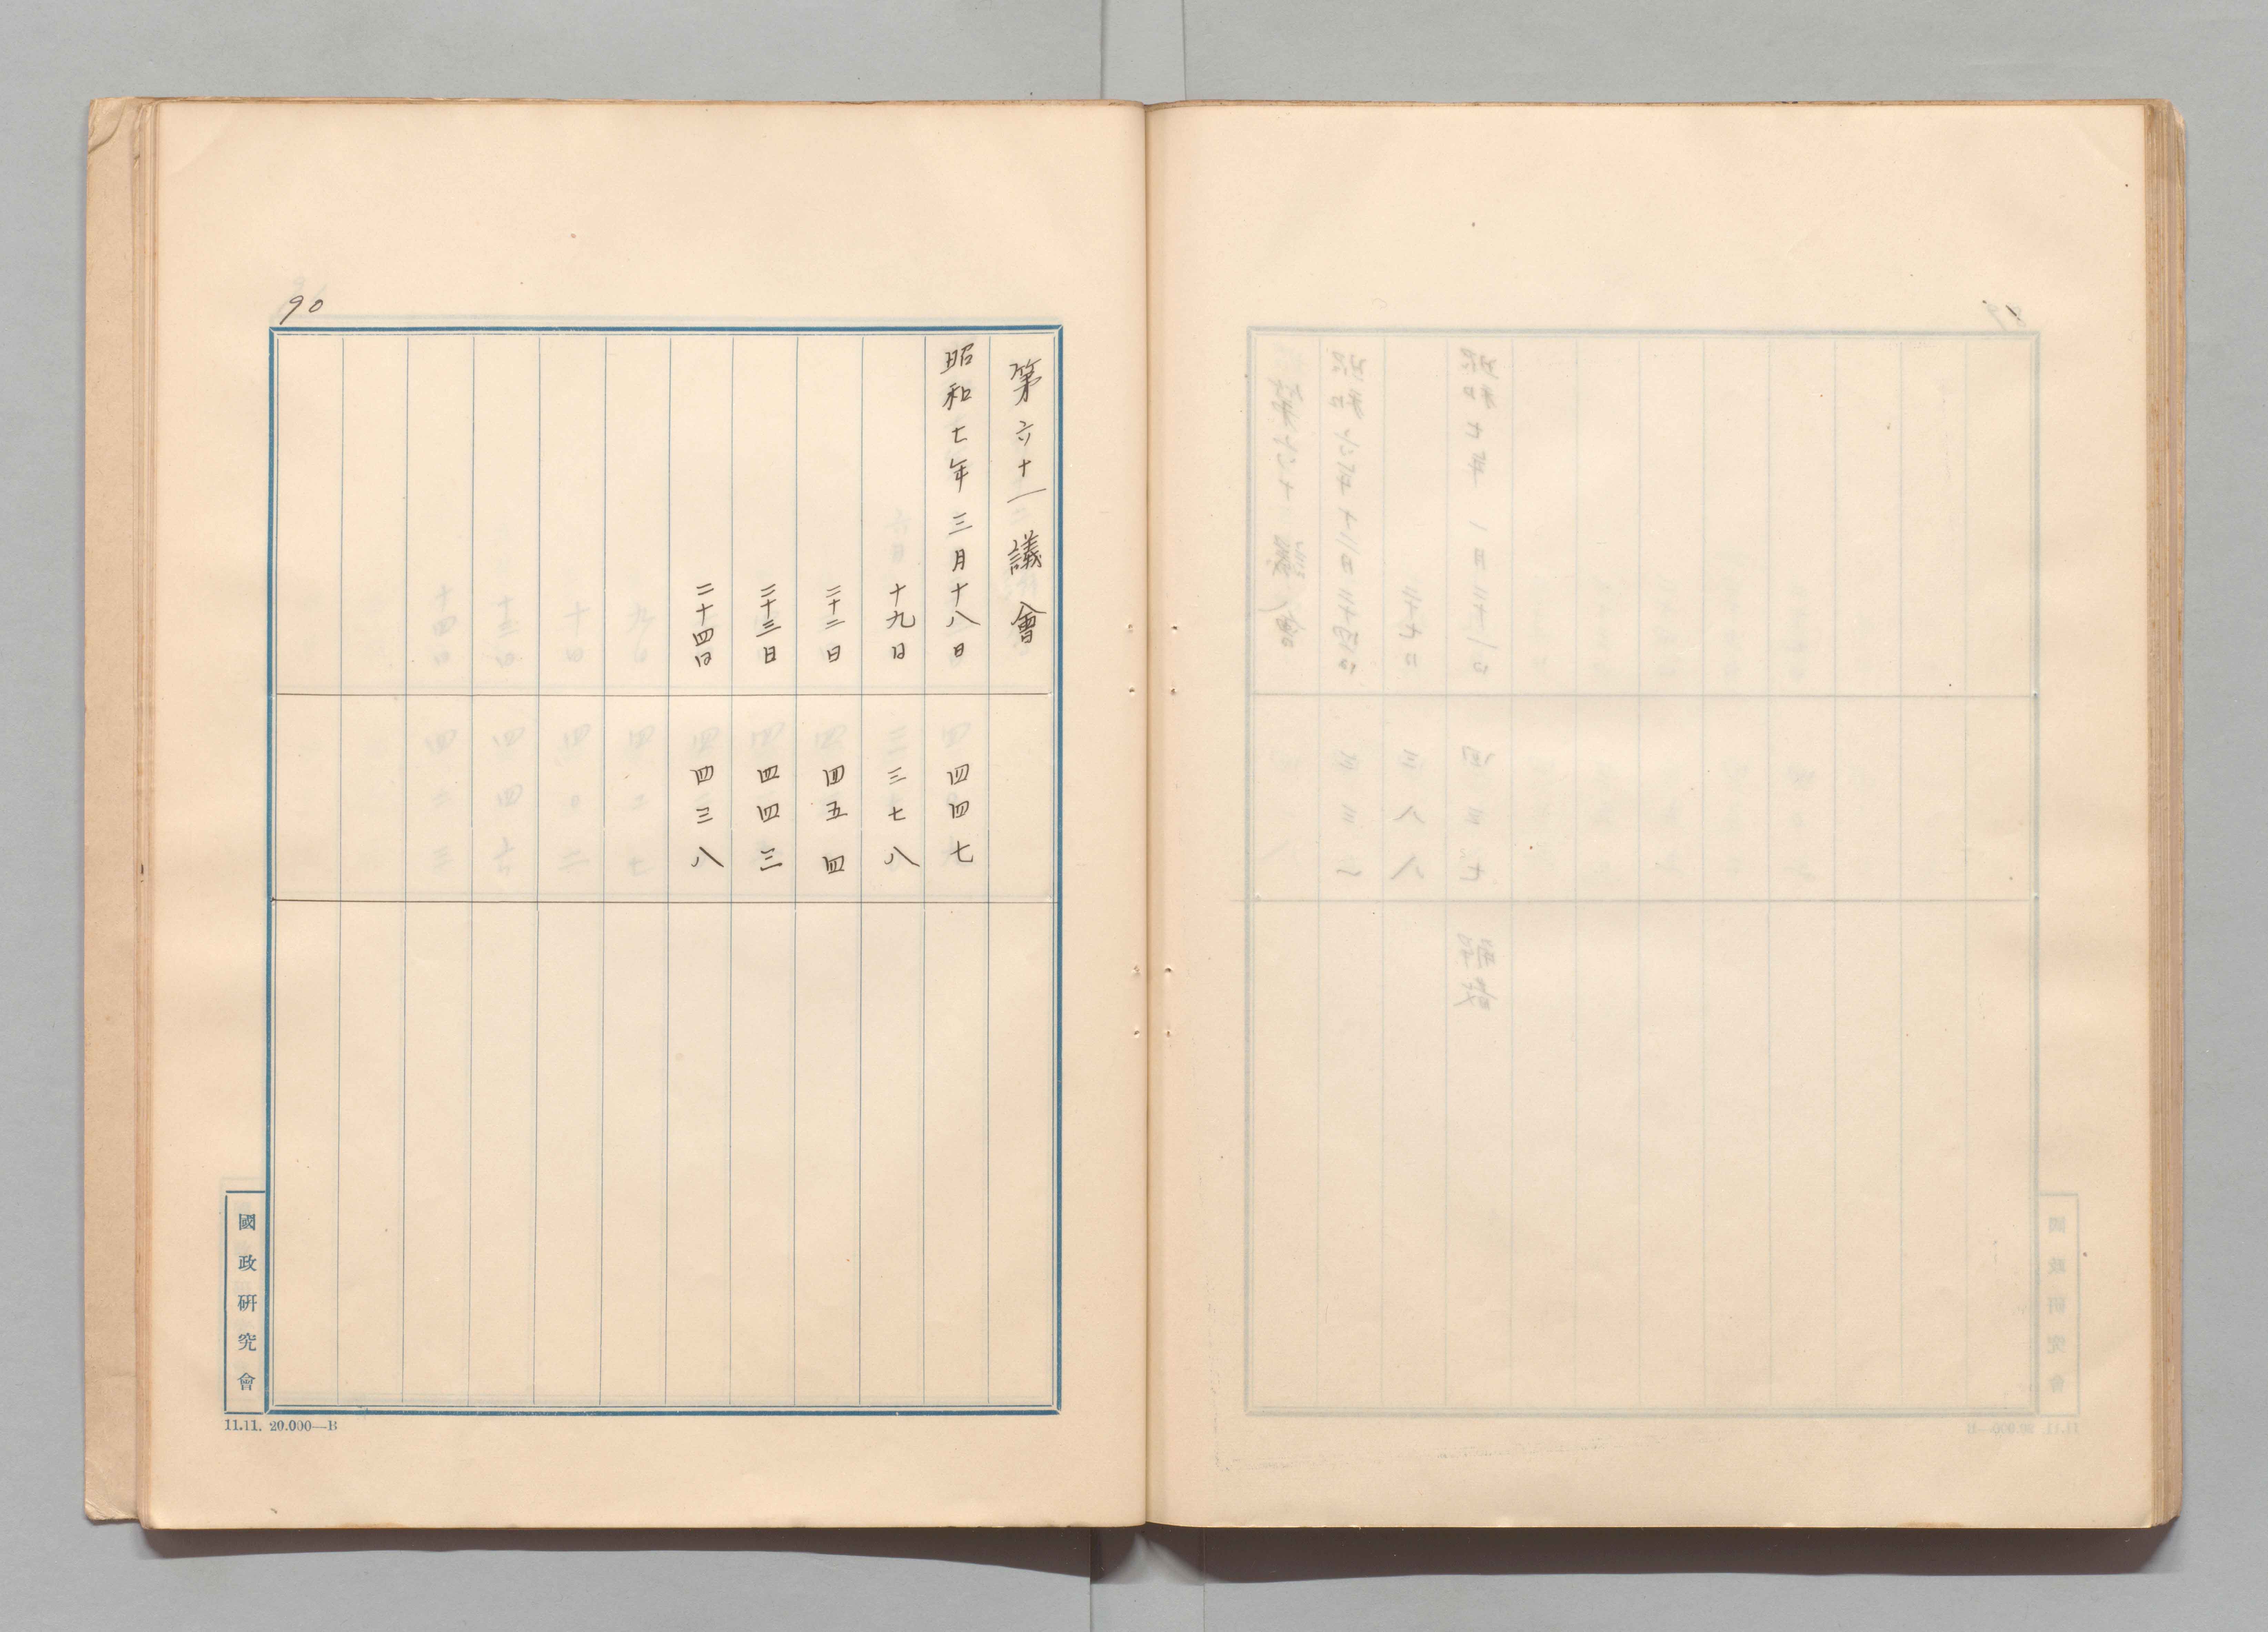 90
第六十一議會
昭和七年三月十八日 四四七
十九日 三七八
二十二日 四五四
二十三日 四四三
二十四日 四三八
國政研究會
11.11. 20.000—B